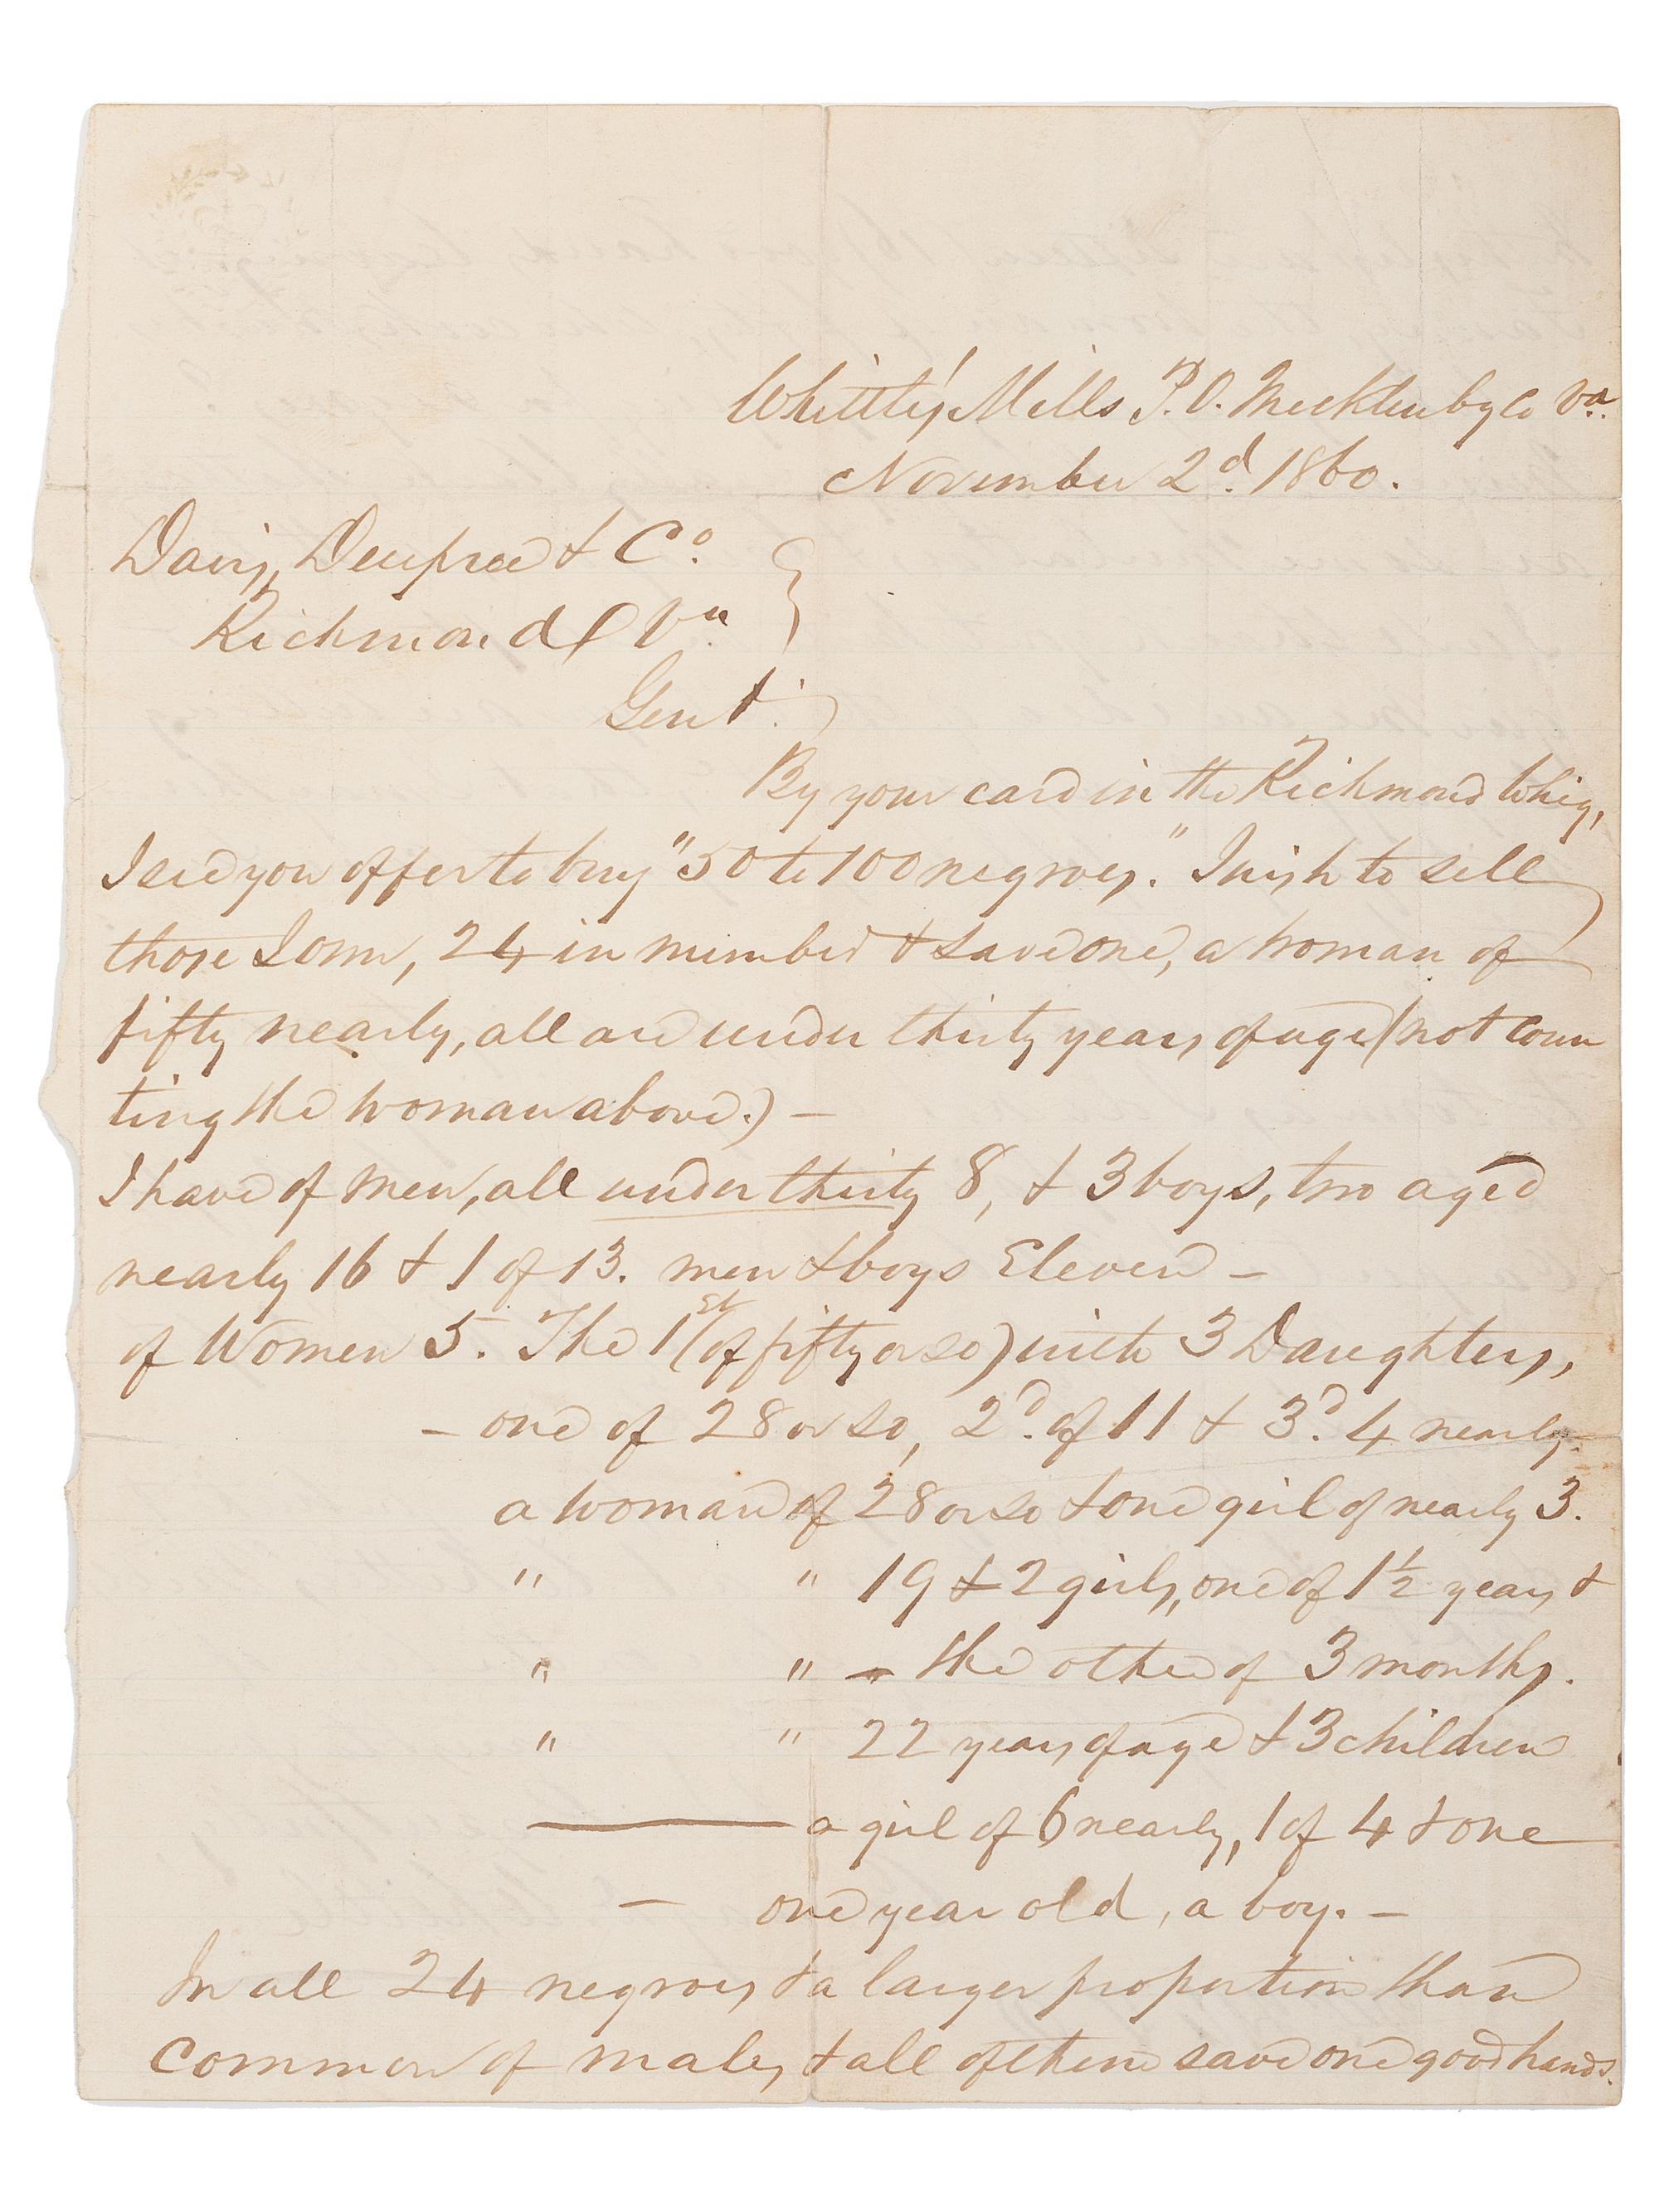 Whittles' Mills P.O. Mecklenbg Co Va.
November 2d. 1860.
Davis, Deupree & Co.
Richmond Va.
Gent.
By your card in the Richmond Whig,
I see you offer to buy "50 to 100 negroes." I wish to sell
those I own, 24 in number & save one, a woman of
fifty nearly, all are under thirty years of age (not coun
ting the woman above.) —
I have of men, all under thirty 8, & 3 boys, two aged
nearly 16 & 1 of 13. men & boys Eleven —
of Women 5. The 1st (of fifty or so) with 3 Daughters,
— one of 28 or so, 2d. of 11 & 3d. 4 nearly.
a woman of 28 or so & one girl of nearly 3.
" " 19 & 2 girls, one of 1½ years &
" " — the other of 3 months.
" " 22 years of age & 3 children
— a girl of 6 nearly, 1 of 4 & one
— one year old, a boy. —
In all 24 negroes & a larger proportion than
common of males, & all of them save one good hands.